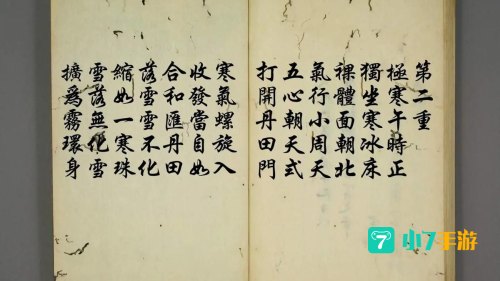 第二重
極寒午時正
獨坐寒冰床
裸體面朝北
氣行小周天
五心朝天式
打開丹田門
寒氣螺旋入
收發當自如
合和匯丹田
落雪雪不化
縮如一寒珠
雪落無化雪
擴為霧環身
7
小7手游